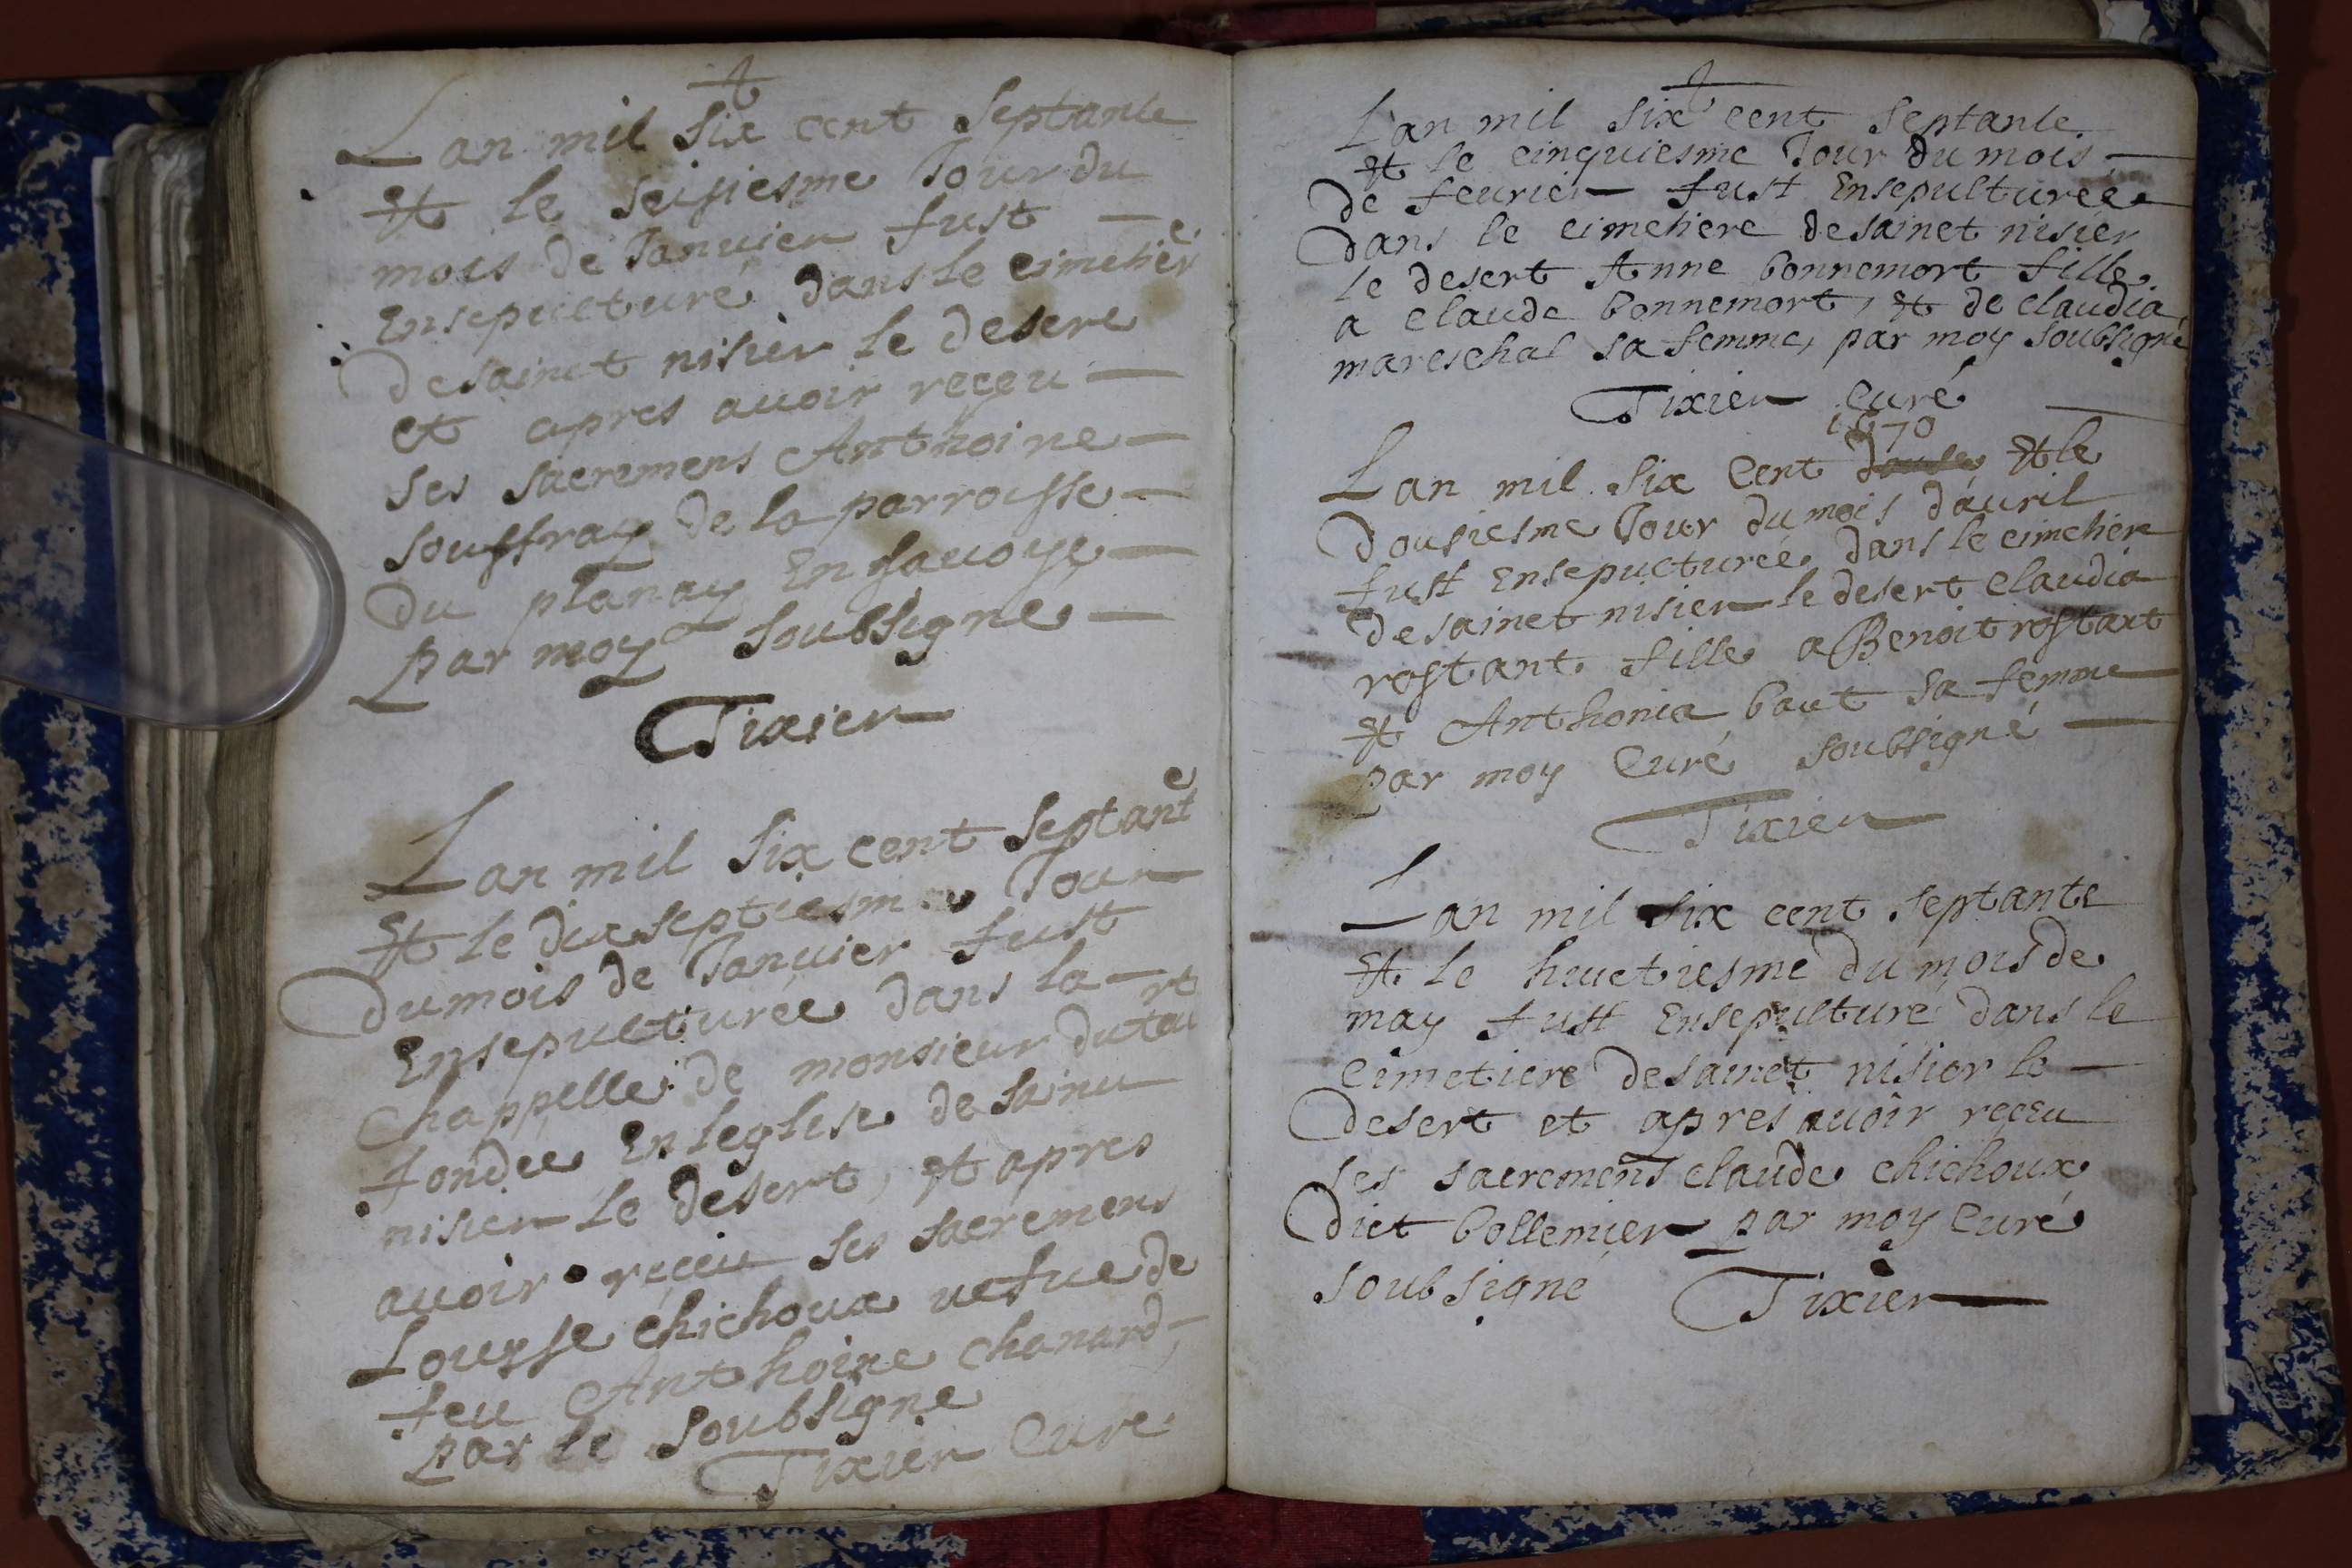 Lan mil six cent septante
et le seisiesme Jour du
mois de Januier fust
Ensepulturé dans le cimetiere
de sainct nisier le desert
et apres auoir reçeu
ses sacremens Anthoine
souffray de la parroisse
du planay En sauoye
par moy soubsigné
Tixier
Lan mil six cent septante
et le dix septiesme Jour
du mois de Januier fust
Ensepulturée dans la
chappelle de monsieur du
fondee En leglise de sainct
nisier le desert, et apres
auoir reçeu ses sacremens
Louyse chichoux uefue de
feu Anthoine chanard,
par le soubsigné
Tixier Curé
L'an mil six cent septante
et le cinquiesme Jour du mois
de feurier fust Ensepulturée
dans le cimetiere de sainct nisier
le desert Anne bonnemort fille
a claude bonnemort, et de claudia
mareschal sa femme, par moy soubsigné
Tixier Curé
1670
Lan mil six Cent douse et le
dousiesme Jour du mois d'auril
fust Ensepucturée dans le cimetiere
de sainct nisier le desert claudia
rostant fille a Benoit rostant
et Anthonia baut sa femme
par moy Curé soubsigné
Tixier
Lan mil six cent septante
et le huictiesme du mois de
may fust Ensepulturé dans le
cimetiere de sainct nisier le
desert et apres auoir reçeu
ses sacremens claude chichoux
dict bollemier par moy Curé
soubsigné Tixier